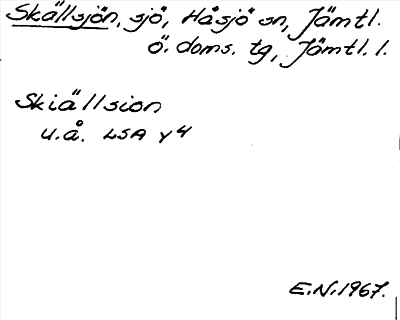 Skällsjön, sjö, Håsjö sn, Jämtl.
ö. doms. tg, Jämtl. l.
Skiällsion
u.å. LSA Y4
E.N. 1967.